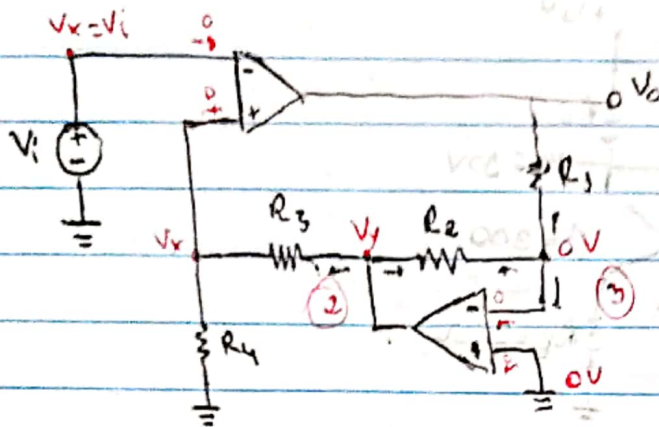 Vx=Vi
0
-
+
0
Vo
Vi
+
-
R1
R3
Vy
R2
Vx
0V
2
3
0
-
+
R4
0V